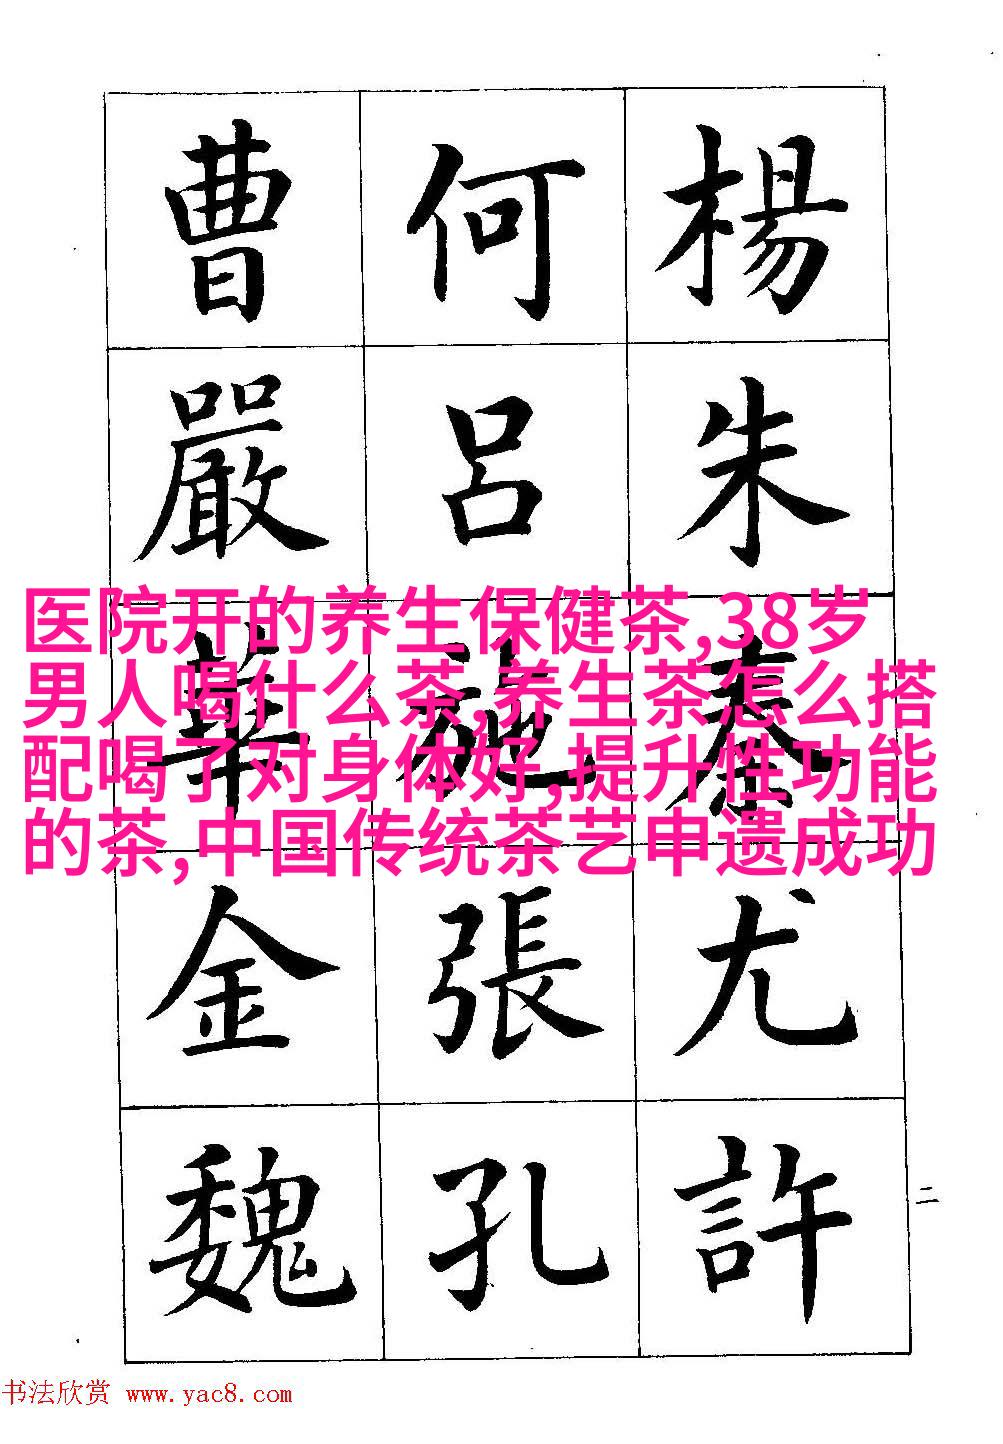 楊朱秦尤許
何呂施張孔
曹嚴華金魏
二
医院开的养生保健茶,38岁
男人喝什么茶,养生茶怎么搭
配喝了对身体好,提升性功能
的茶,中国传统茶艺申遗成功
书法欣赏 www.yac8.com